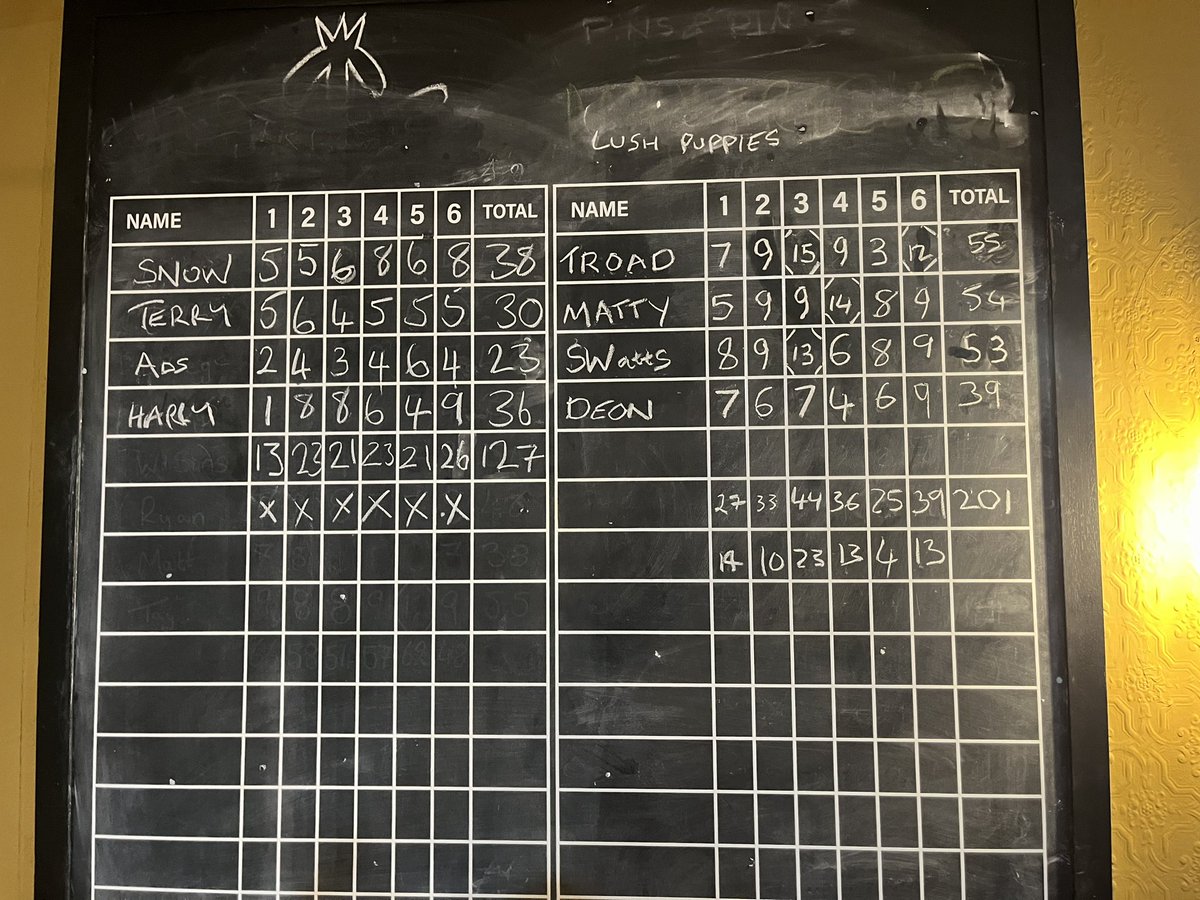 LUSH PUPPIES
NAME 1 2 3 4 5 6 TOTAL NAME 1 2 3 4 5 6 TOTAL
SNOW 5 5 6 8 6 8 38 TROAD 7 9 15 9 3 12 55
TERRY 5 6 4 5 5 5 30 MATTY 5 9 9 14 8 9 54
ADS 2 4 3 4 6 4 23 SWatts 8 9 13 6 8 9 53
HARRY 1 8 8 6 4 9 36 DEON 7 6 7 4 6 9 39
13 23 21 23 21 26 127
Ryan X X X X X X 27 33 44 36 25 39 201
14 10 23 13 4 13